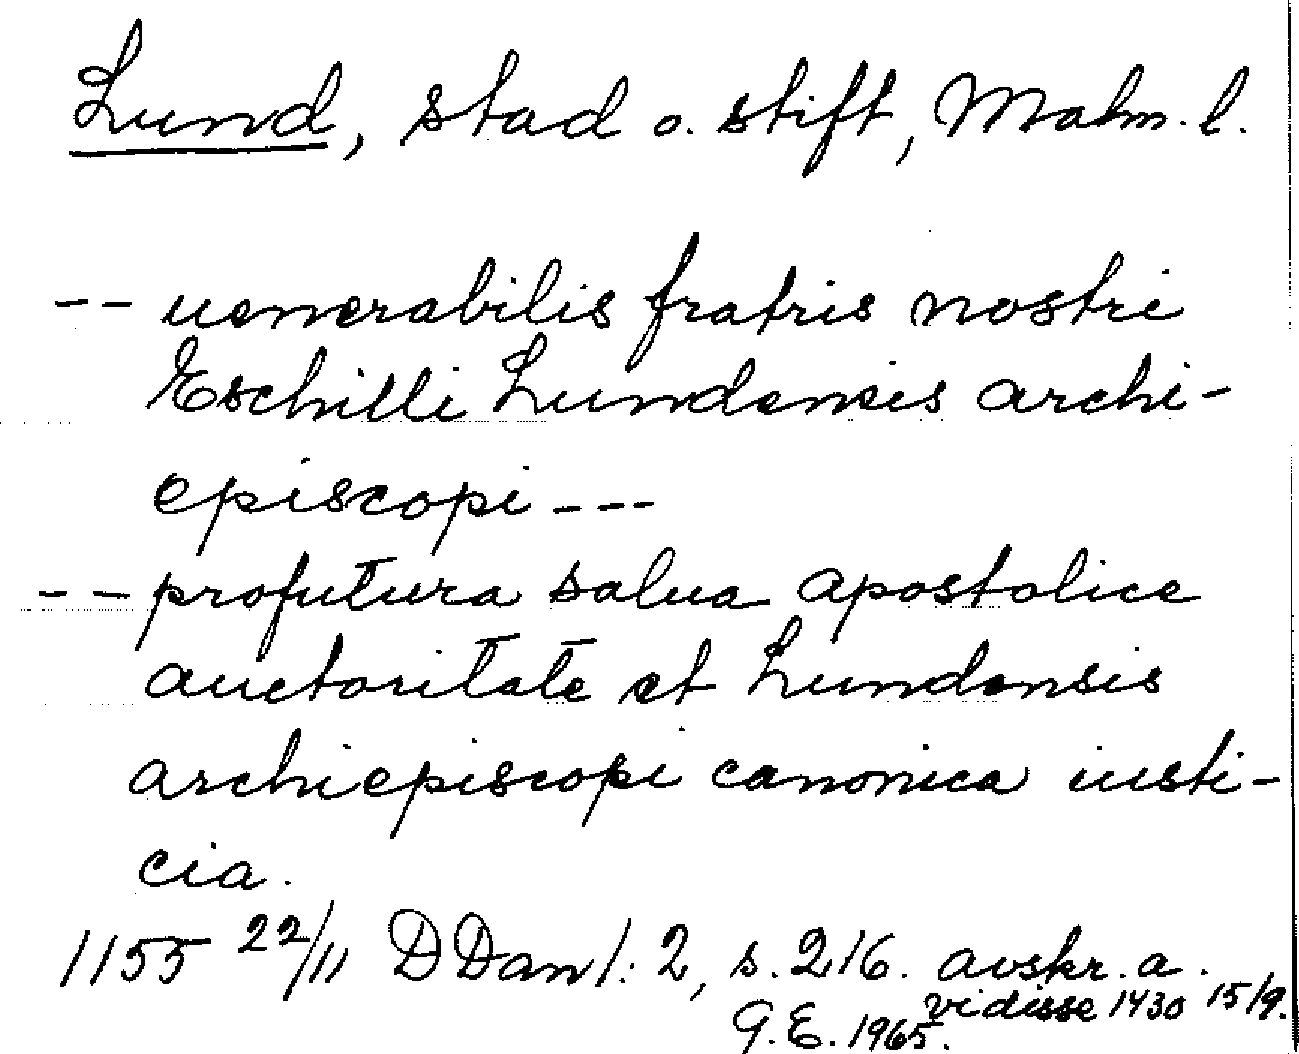 Lund, stad o. stift, Malm. l.
-- uenerabilis fratris nostri
Eschilli Lundensis archi-
episcopi ---
-- profutura salua apostolice
auctoritate et Lundensis
archiepiscopi canonica iusti-
cia.
1155 22/11 DDan 1:2, s. 216. avskr. a.
vidisse 1430 15/9.
G.E. 1965.